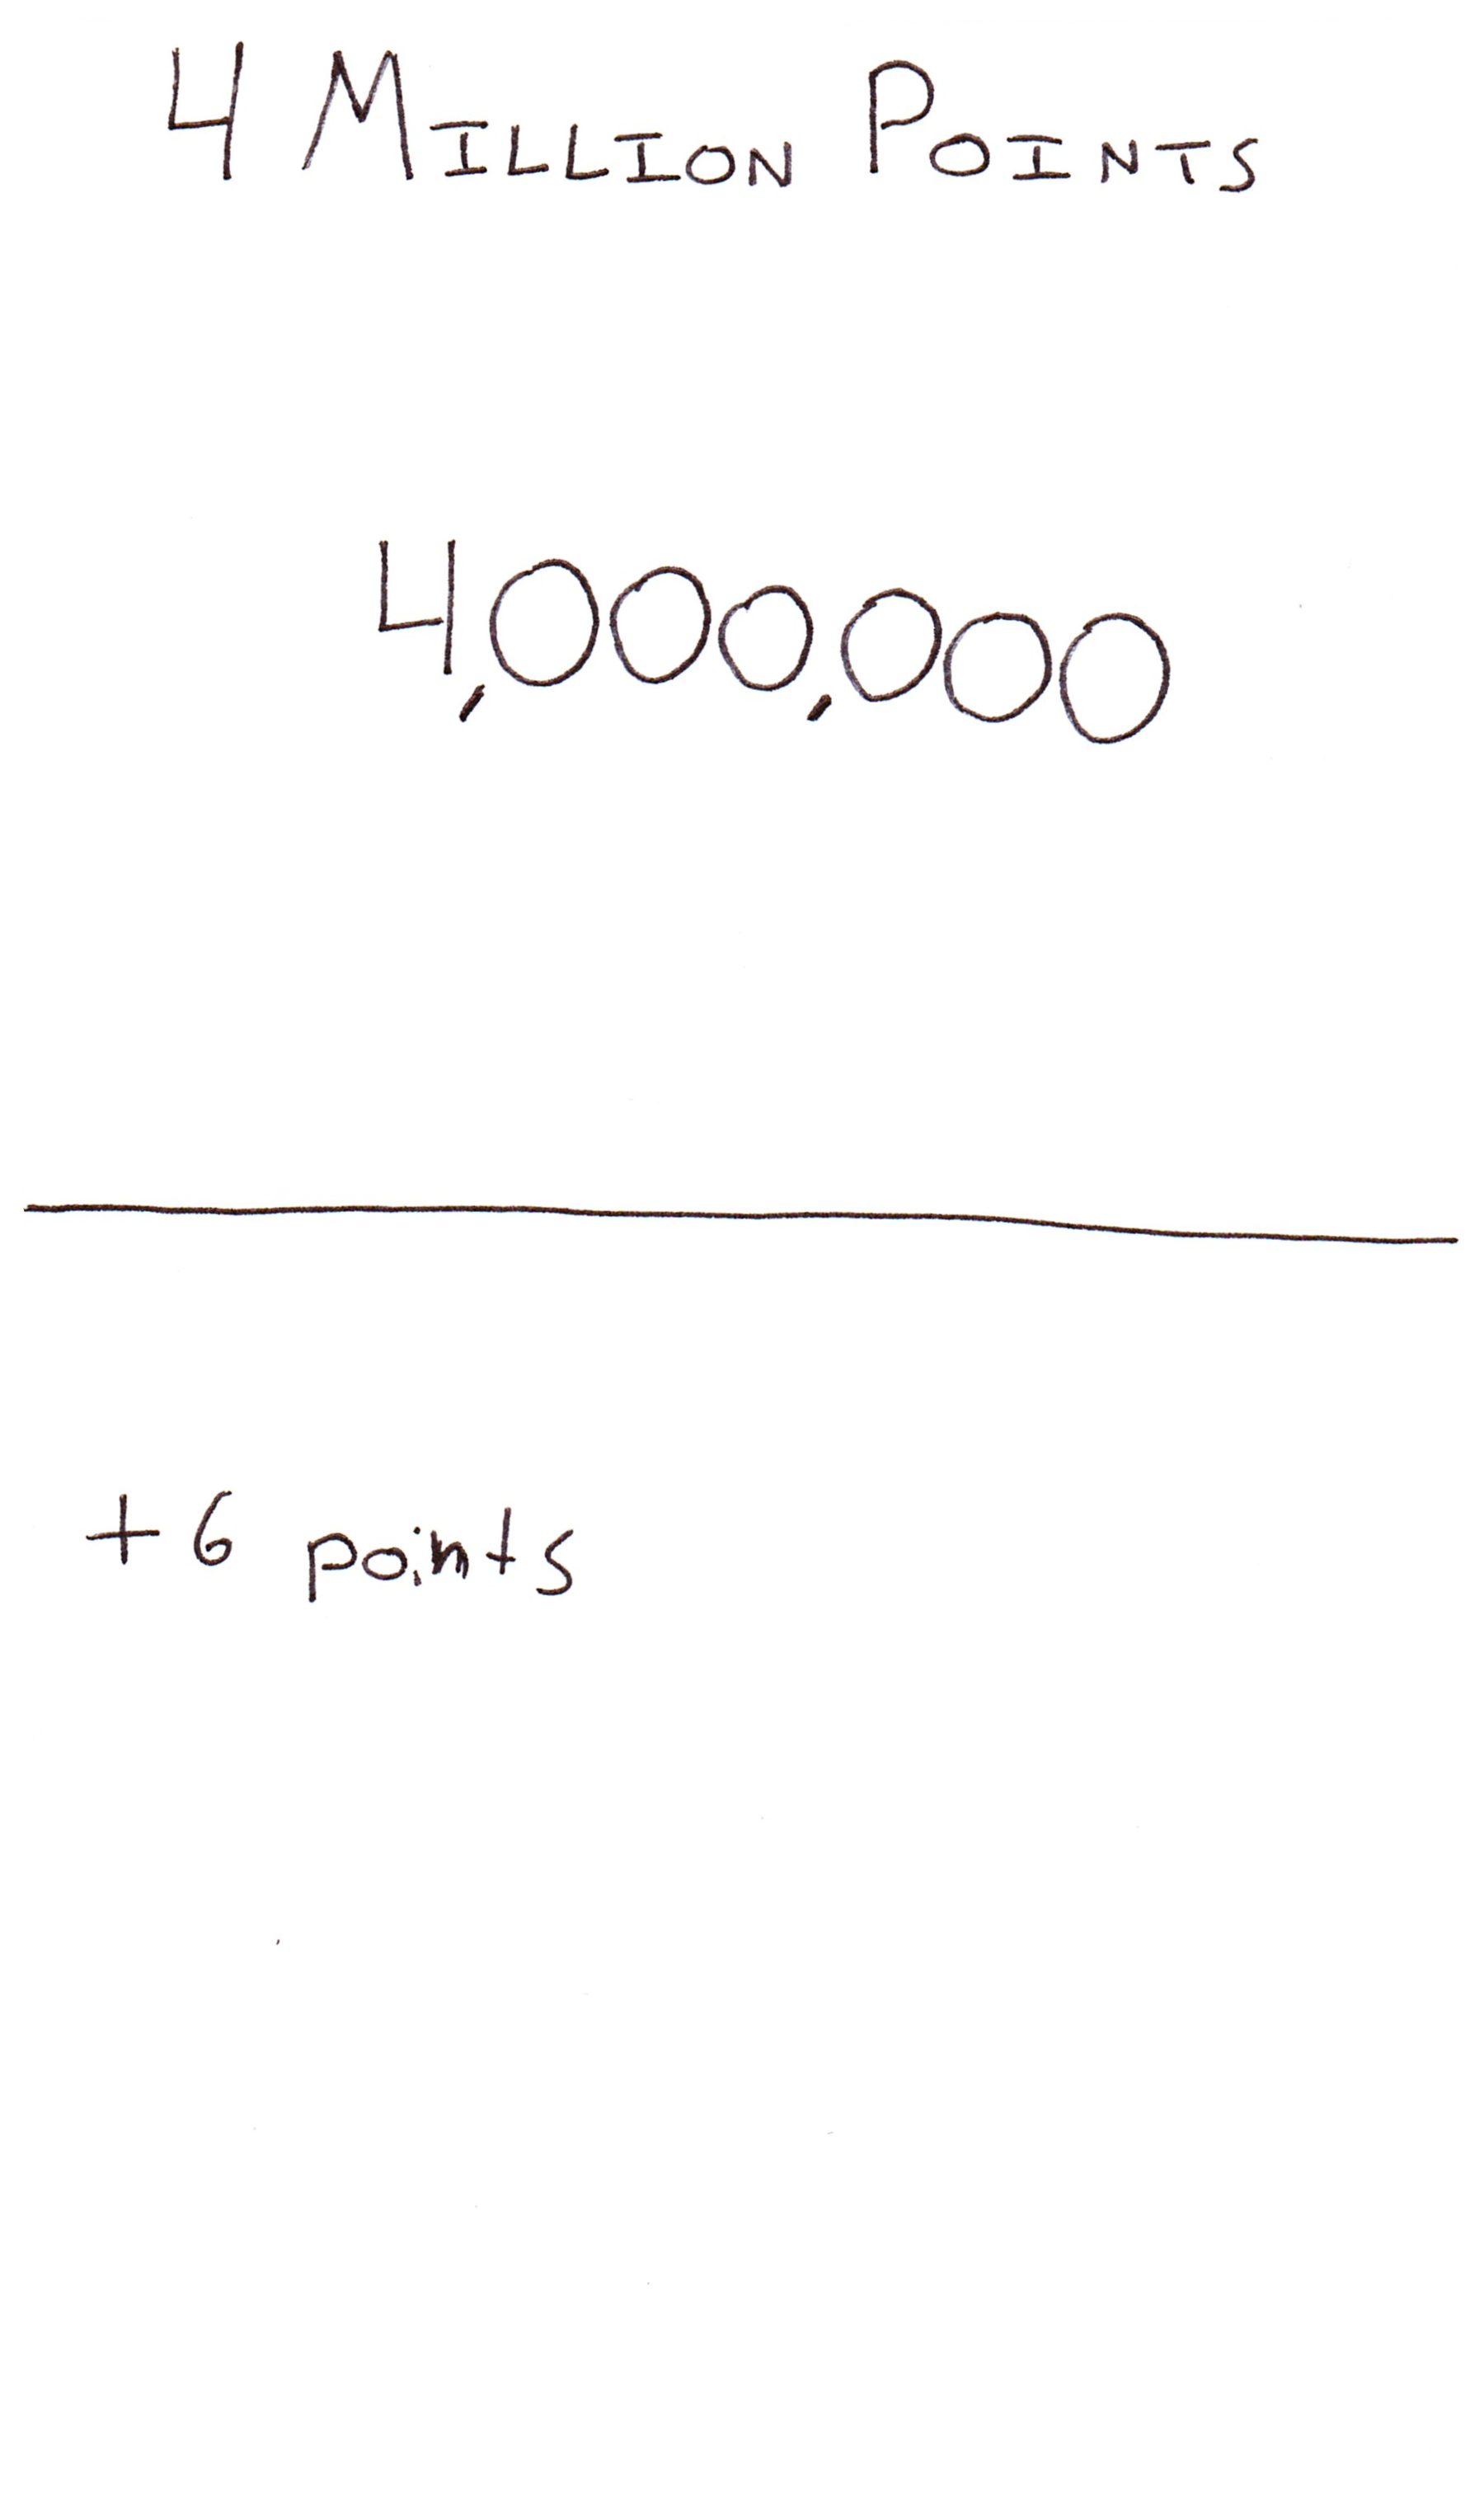 4 Million Points
4,000,000
+6 points